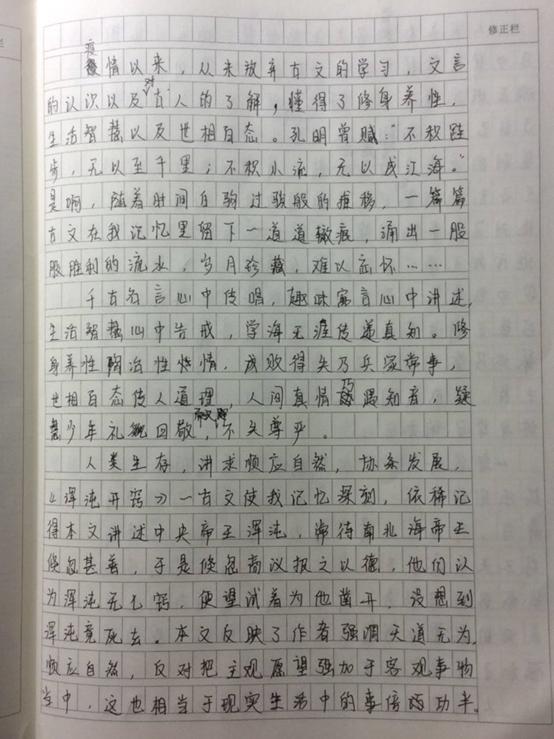 修正栏
疫情以来，从未放弃古文的学习，文言
的认次以及对古人的了解，懂得了修身养性，
生活智慧以及世相百态。孔明曾赋：“不积跬
步，无以至千里；不积小流，无以成江海。”
是啊，随着时间白驹过隙般的推移，一篇篇
古文在我记忆里留下一道道辙痕，涌出一股
股胜利的流水，岁月珍藏，难以忘怀……
千古名言心中传唱，趣味寓言心中讲述，
生活智慧心中告戒，学海无涯传递真知。修
身养性陶冶性情，成败得失乃兵家常事，
世相百态传人道理，人间真情乃遇知音，疑
少年礼貌回敬，不失尊严。
人类生存，讲求顺应自然，协条发展，
《浑沌开窍》一古文使我记忆深刻，依稀记
得本文讲述中央帝王浑沌，常待南北海帝王
倏忽甚善，于是倏忽商议报之以德，他们认
为浑沌无七窍，便望试着为他凿开，没想到
浑沌竟死去。本文反映了作者强调天道无为，
顺应自然，反对把主观愿望强加于客观事物
当中，这也相当于现实生活中的事倍而功半。